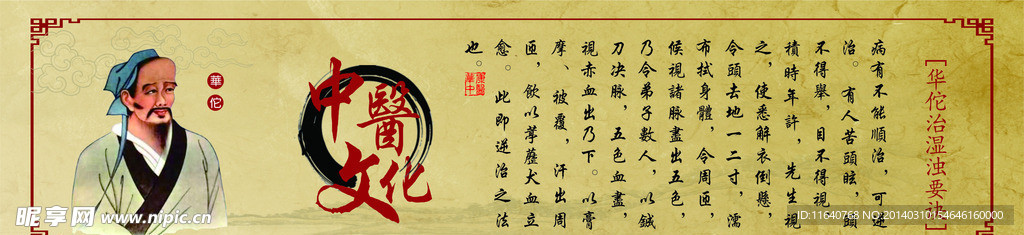 華佗
中醫文化
[华佗治湿浊要诀]
病有不能順治，可逆
治。有人苦頭眩，頭
不得舉，目不得視，
積時年許，先生視
之，使悉解衣倒懸，
令頭去地一二寸，濡
布拭身體，令周匝，
候視諸脉盡出五色，
乃令弟子數人，以鈹
刀决脉，五色血盡，
視赤血出乃下。以膏
摩、被覆，汗出周
匝，飲以葶藶犬血立
愈。此即逆治之法
也。
昵享网 www.nipic.cn
ID:11640768 NO:20140310154646160000